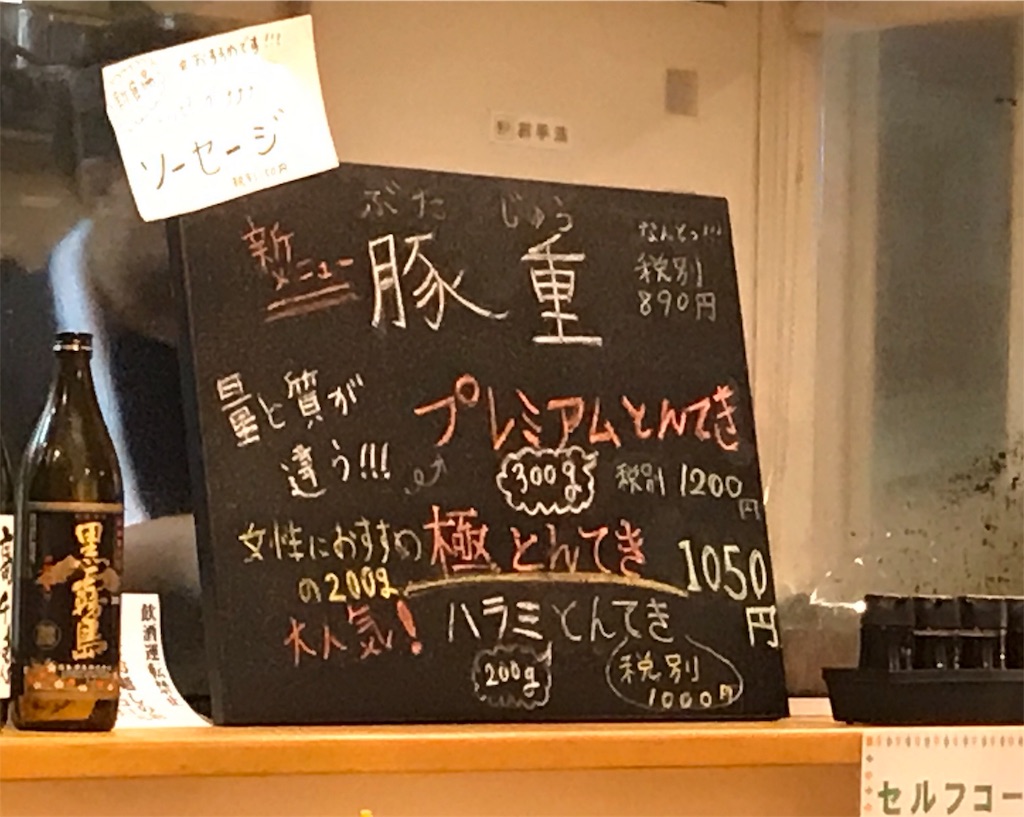 おすすめです!!!
ソーセージ
お手洗
ぶた じゅう
新メニュー
豚重
なんとっ!!!
税別
890円
量と質が
違う!!!
プレミアムとんてき
300g
税別 1200円
女性におすすめ
の200g
極とんてき
1050円
大人気!
ハラミとんてき
200g
税別
1000円
黒霧島
飲酒運転
セルフコー